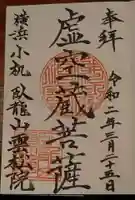 奉拝
令和二年三月二十五日
虚空蔵菩薩
横浜小机
臥龍山雲松院